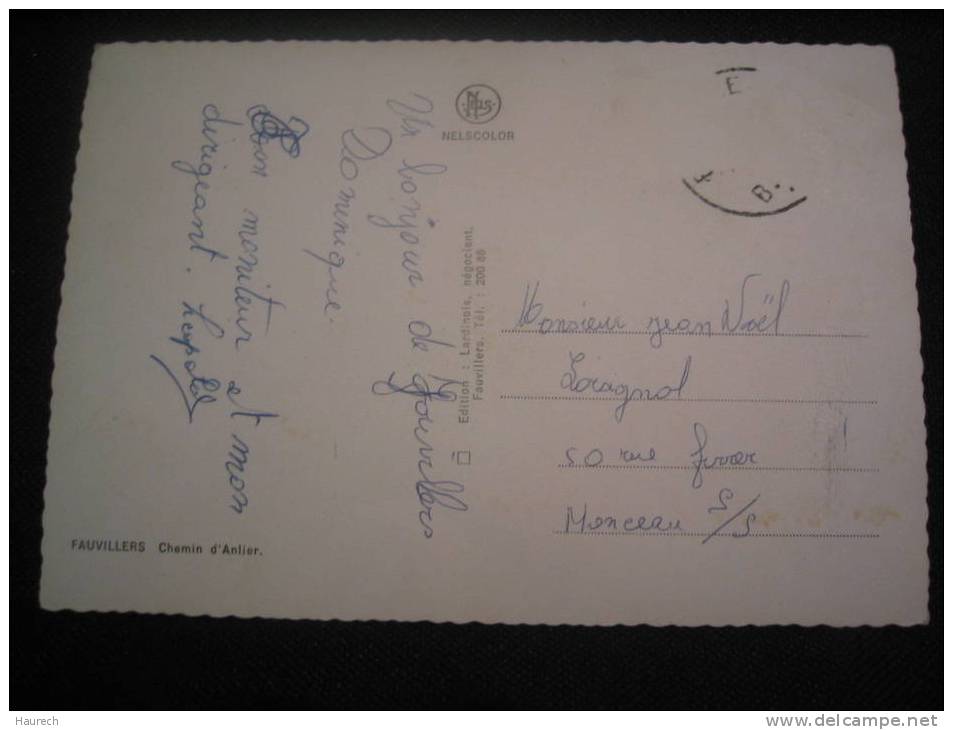 Nels
NELSCOLOR
Un bonjour de
Dominique.
mon moniteur et mon
dirigeant. Léopold
Edition : Lardinois, négociant.
Fauvillers. Tél. : 200 88
FAUVILLERS Chemin d'Anlier.
E
B
Monsieur Jean Noël
50 rue
Monceau S/S
Haurech
www.delcampe.net